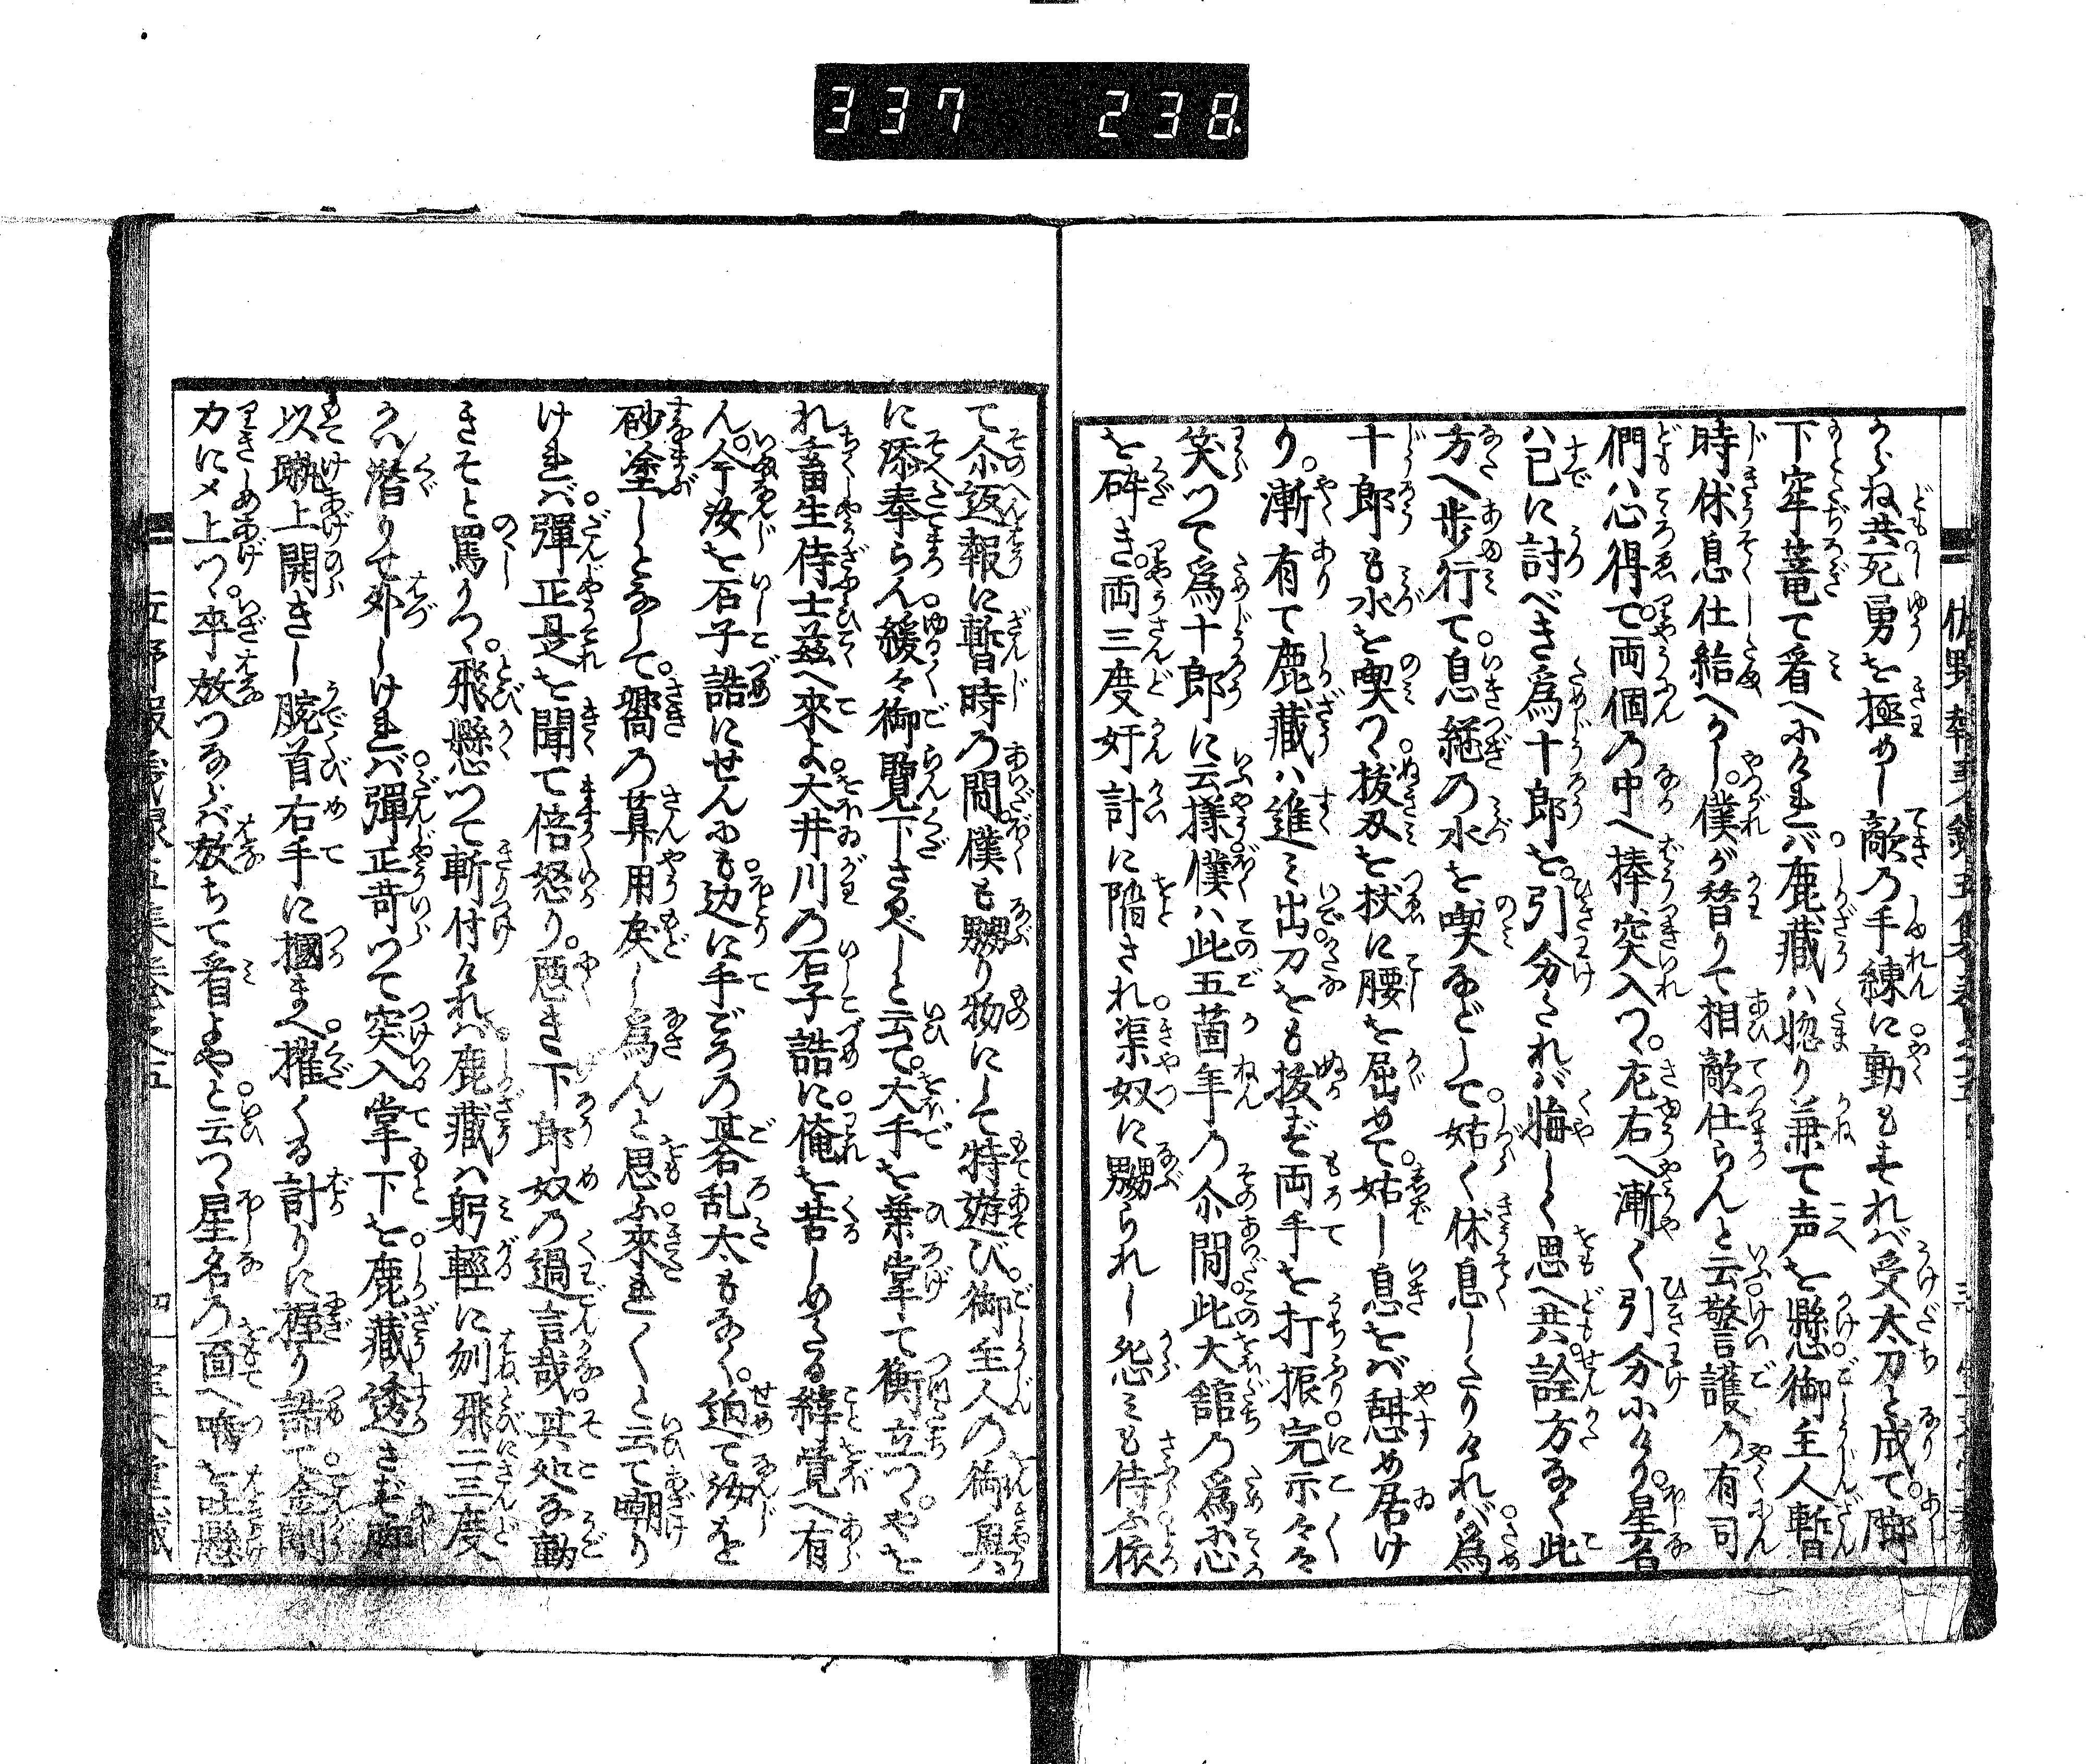 337 238
らね共死勇を極めし敵の手練に動もすれバ受太刀と成て。脚
下牢菴て看へにけれバ鹿藏ハ惚り兼て声を懸御主人暫
時休息仕給へかし。僕が替りて相敵仕らんと云警護の有司
們ハ心得て。両個の中へ捧突入つ。左右へ漸く引分にけり。星名
ハ已に討べき爲十郎を。引分られバ悔しく思へ共。詮方なく此
方へ歩行て。息継の水を喫などして。姑く休息したりけれバ。爲
十郎も水を喫つ。抜刄を杖に腰を屈めて。姑し息をバ憩め居け
り。漸有て鹿藏ハ進ミ出。刀をも抜ず両手を打振。完示々々
笑つて爲十郎に云樣。僕ハ此五箇年の尒間。此大舘の爲に忠
を砕き。両三度奸計に陷され。渠奴に嬲られし怨ミも侍ふ。依
て尒返報に暫時の間。僕も嬲り物にして特遊び。御主人の御輿
に添奉らん。緩々御覽下さるべしと云て。大手を菐掌て衡立つ。やを
れ畜生侍士茲へ來よ。大井川の石子詰に。俺を苦しめたる緯覚へ有
ん。今汝を石子詰にせんにも。辺に手ごろの碁乱太もなく。迫て汝を
砂塗しとなして。嚮の算用戻し爲んと思ふ。來れ〱と云て嘲り
けれバ。彈正是を聞て倍怒り。悪き下郎奴の過言哉。其処な動
きそと罵りつ。飛懸つて斬付れバ。鹿藏ハ躬輕に刎飛二三度
かい潜りせ外しけれバ。彈正苛つて突入掌下を。鹿藏透さず脚
以蹴上開きし腕首右手に摑まへ。擢くる計りに握り詰て。金剛
力に〆上つ。卒放つならバ放ちて看よやと。云つ星名の面へ啼を吐懸